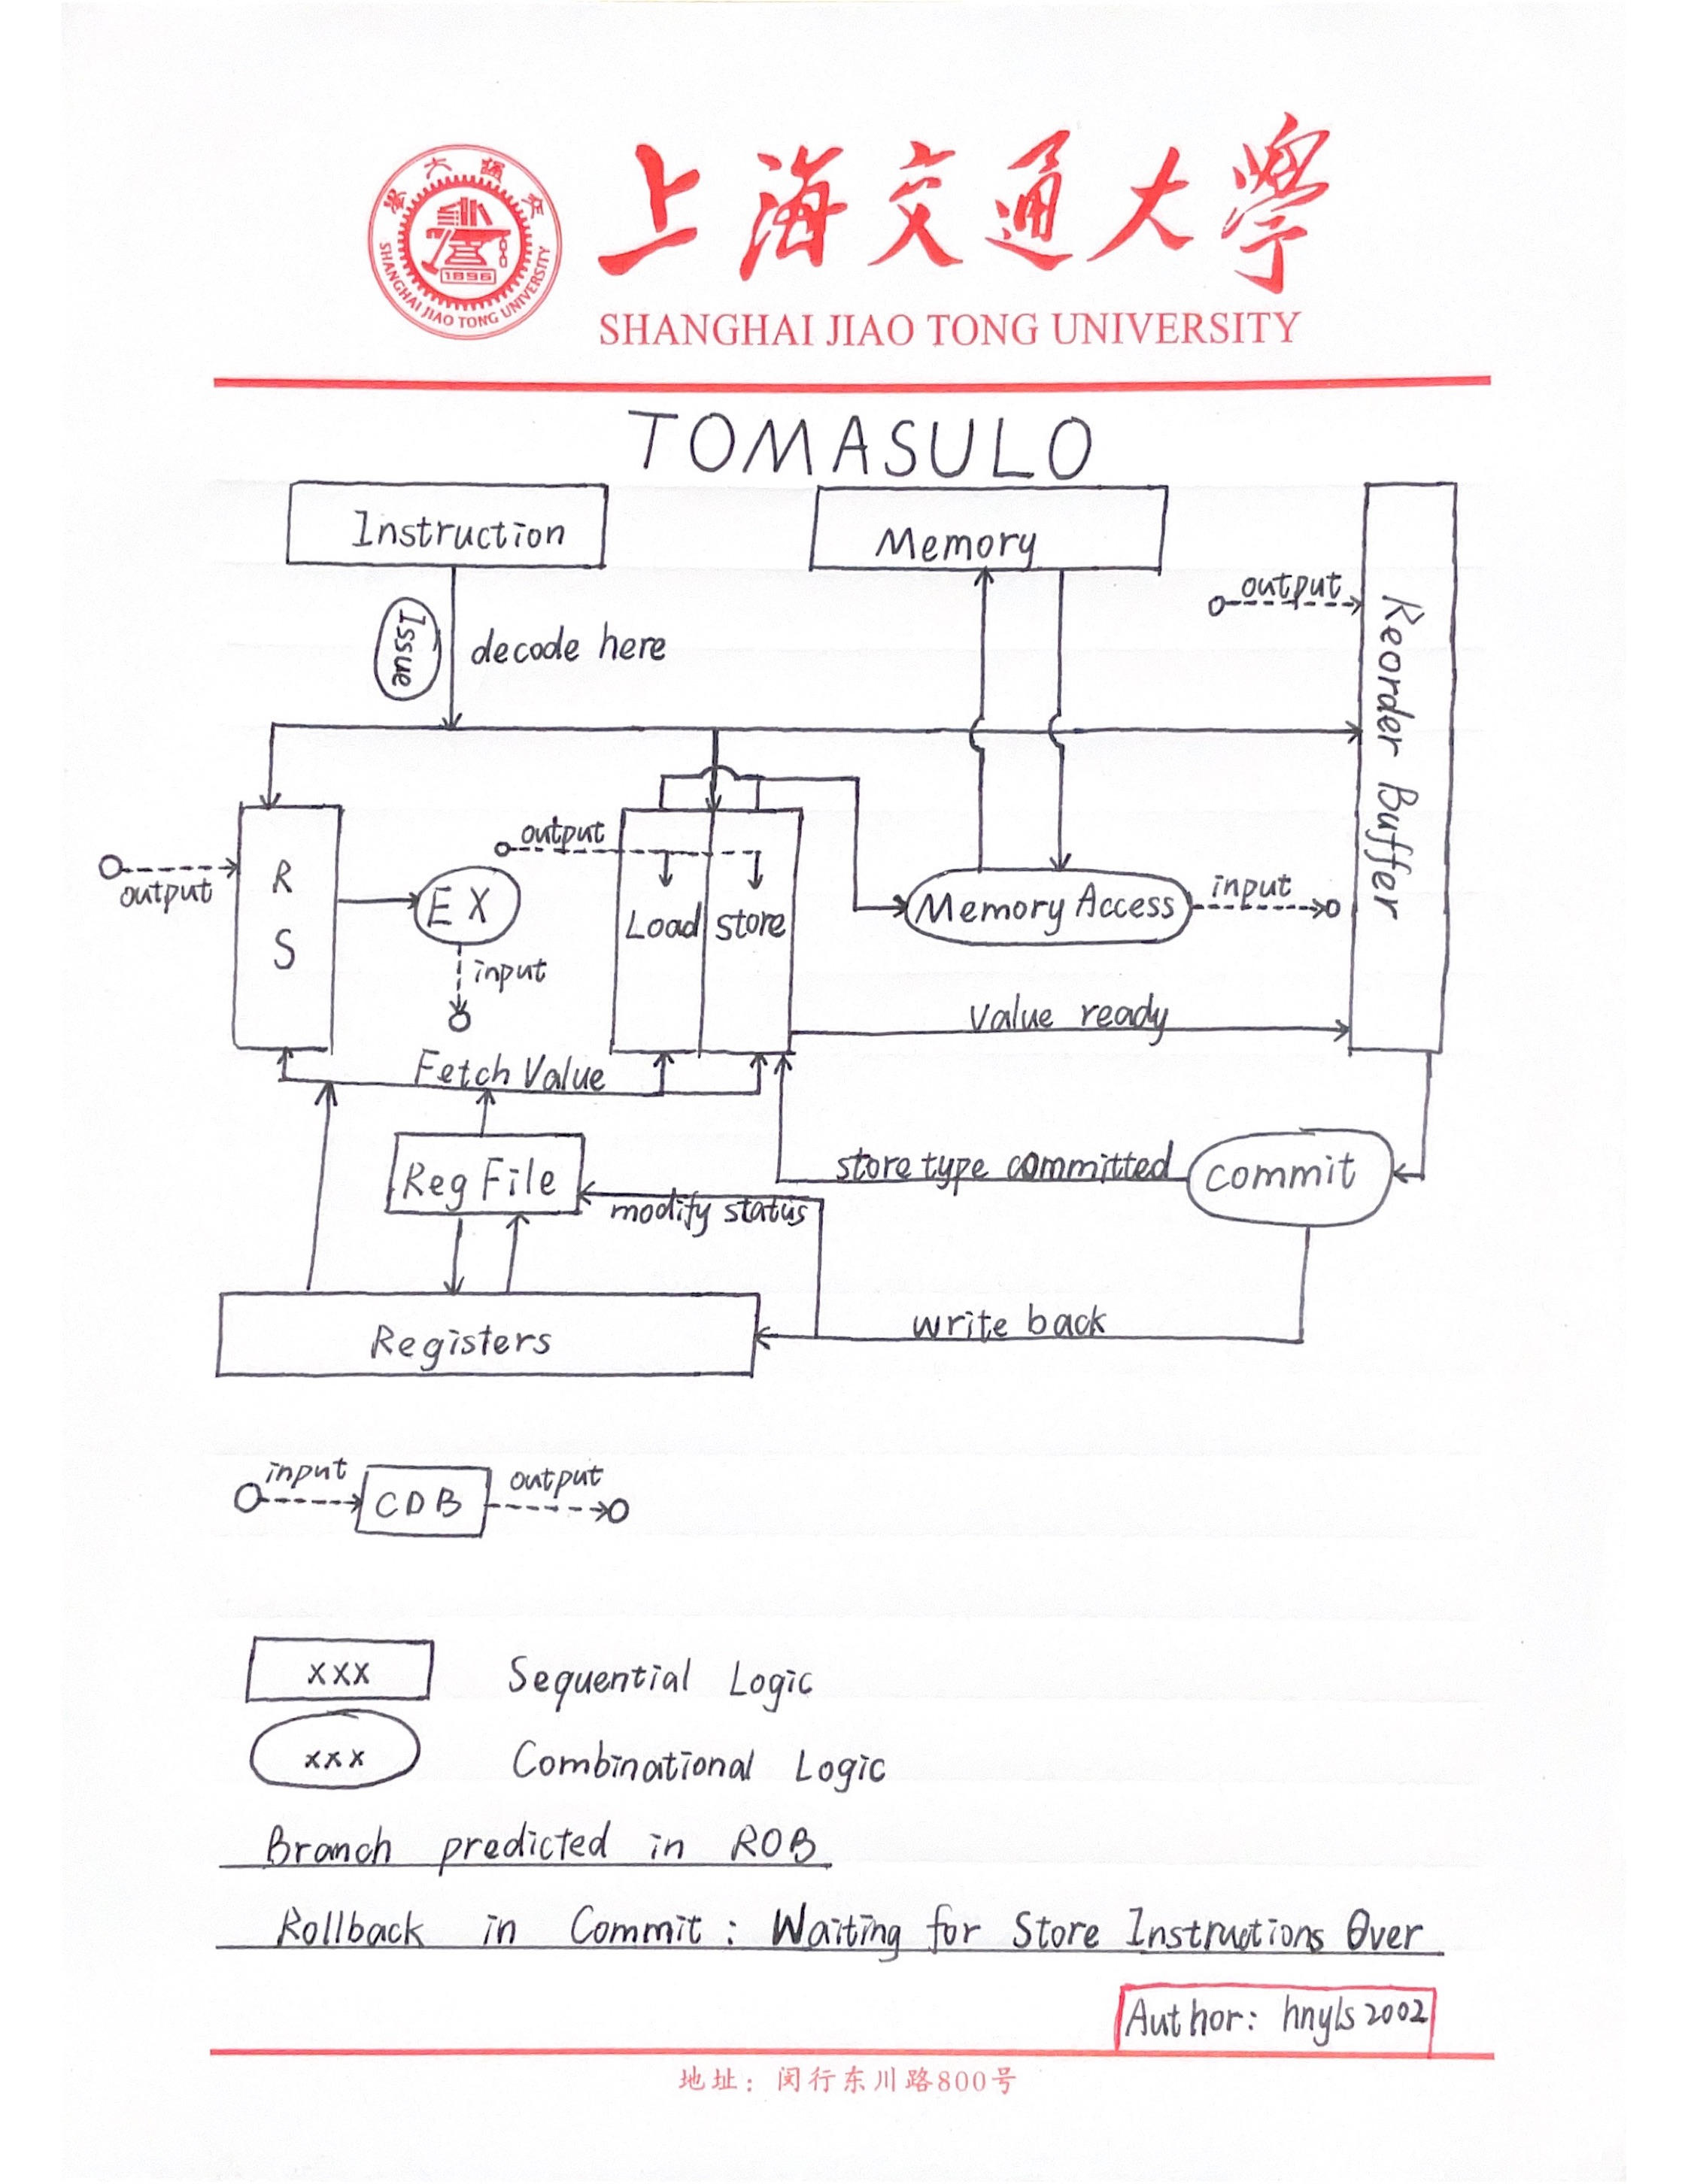 上海交通大學
SHANGHAI JIAO TONG UNIVERSITY
1896
SHANGHAI JIAO TONG UNIVERSITY
TOMASULO
Instruction
Memory
output
Reorder Buffer
Issue
decode here
output
R
S
EX
output
Load
store
Memory Access
input
input
value ready
Fetch Value
Reg File
store type committed
commit
modify status
Registers
write back
input
CDB
output
xxx Sequential Logic
xxx Combinational Logic
Branch predicted in ROB
Rollback in Commit : Waiting for Store Instructions Over
Author: hnyls2002
地址：闵行东川路800号